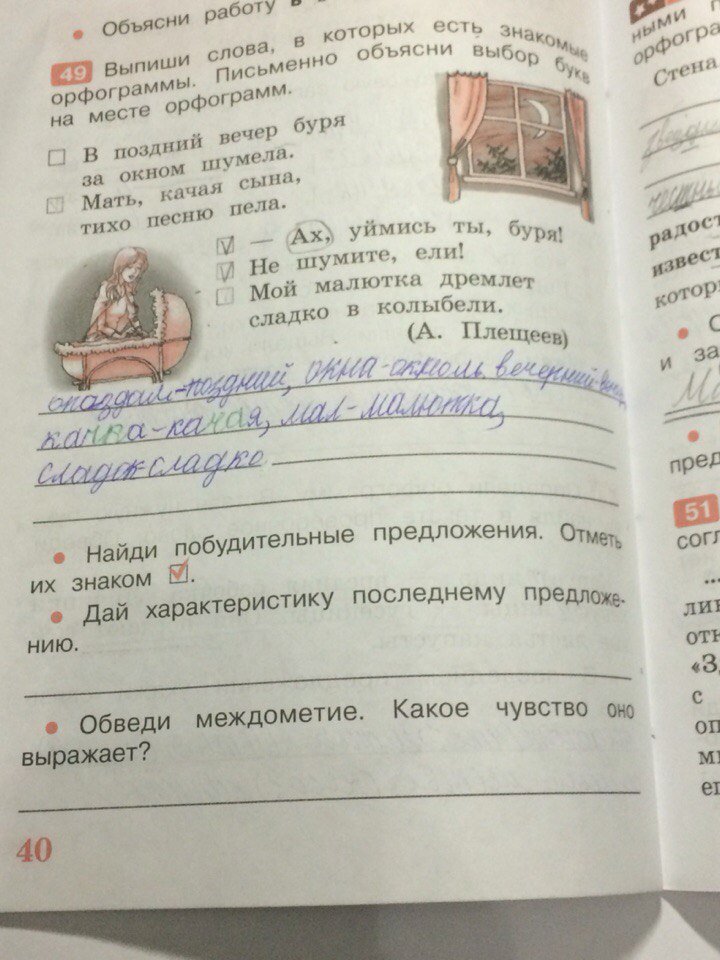 Объясни работу в
49 Выпиши слова, в которых есть знакомые
орфограммы. Письменно объясни выбор букв
на месте орфограмм.
В поздний вечер буря
за окном шумела.
Мать, качая сына,
тихо песню пела.
— Ах, уймись ты, буря!
Не шумите, ели!
Мой малютка дремлет
сладко в колыбели.
(А. Плещеев)
опаздал-поздний, окна-окном, вечерний-
качка-качая, мал-малютка,
сладок сладко
Найди побудительные предложения. Отметь
их знаком ☑.
Дай характеристику последнему предложе-
нию.
Обведи междометие. Какое чувство оно
выражает?
40
ными
орфогра
Стена
звезды
честны
радост
извест
котор
С
и за
Ма
пред
51
согл
...
ли
отн
«З
с
оп
м
ег